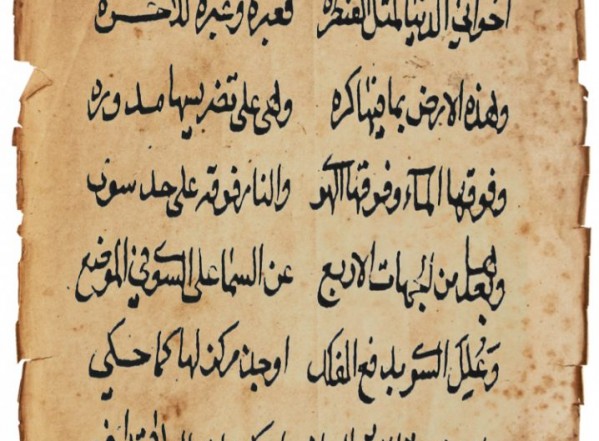 اخواني الدنيا لمثل القنطره فعبره وعبره للاخره
وهذه الارض بما فيها كره وهي على تضريسها مدوره
وفوقها الماء وفوقها الهوا والنار فوقه على حد سوى
وبعدها من الجهات الاربع عن السما على السوى في الموضع
وعلل السكون بدفع الفلك او جذب مركز لها كما حكي